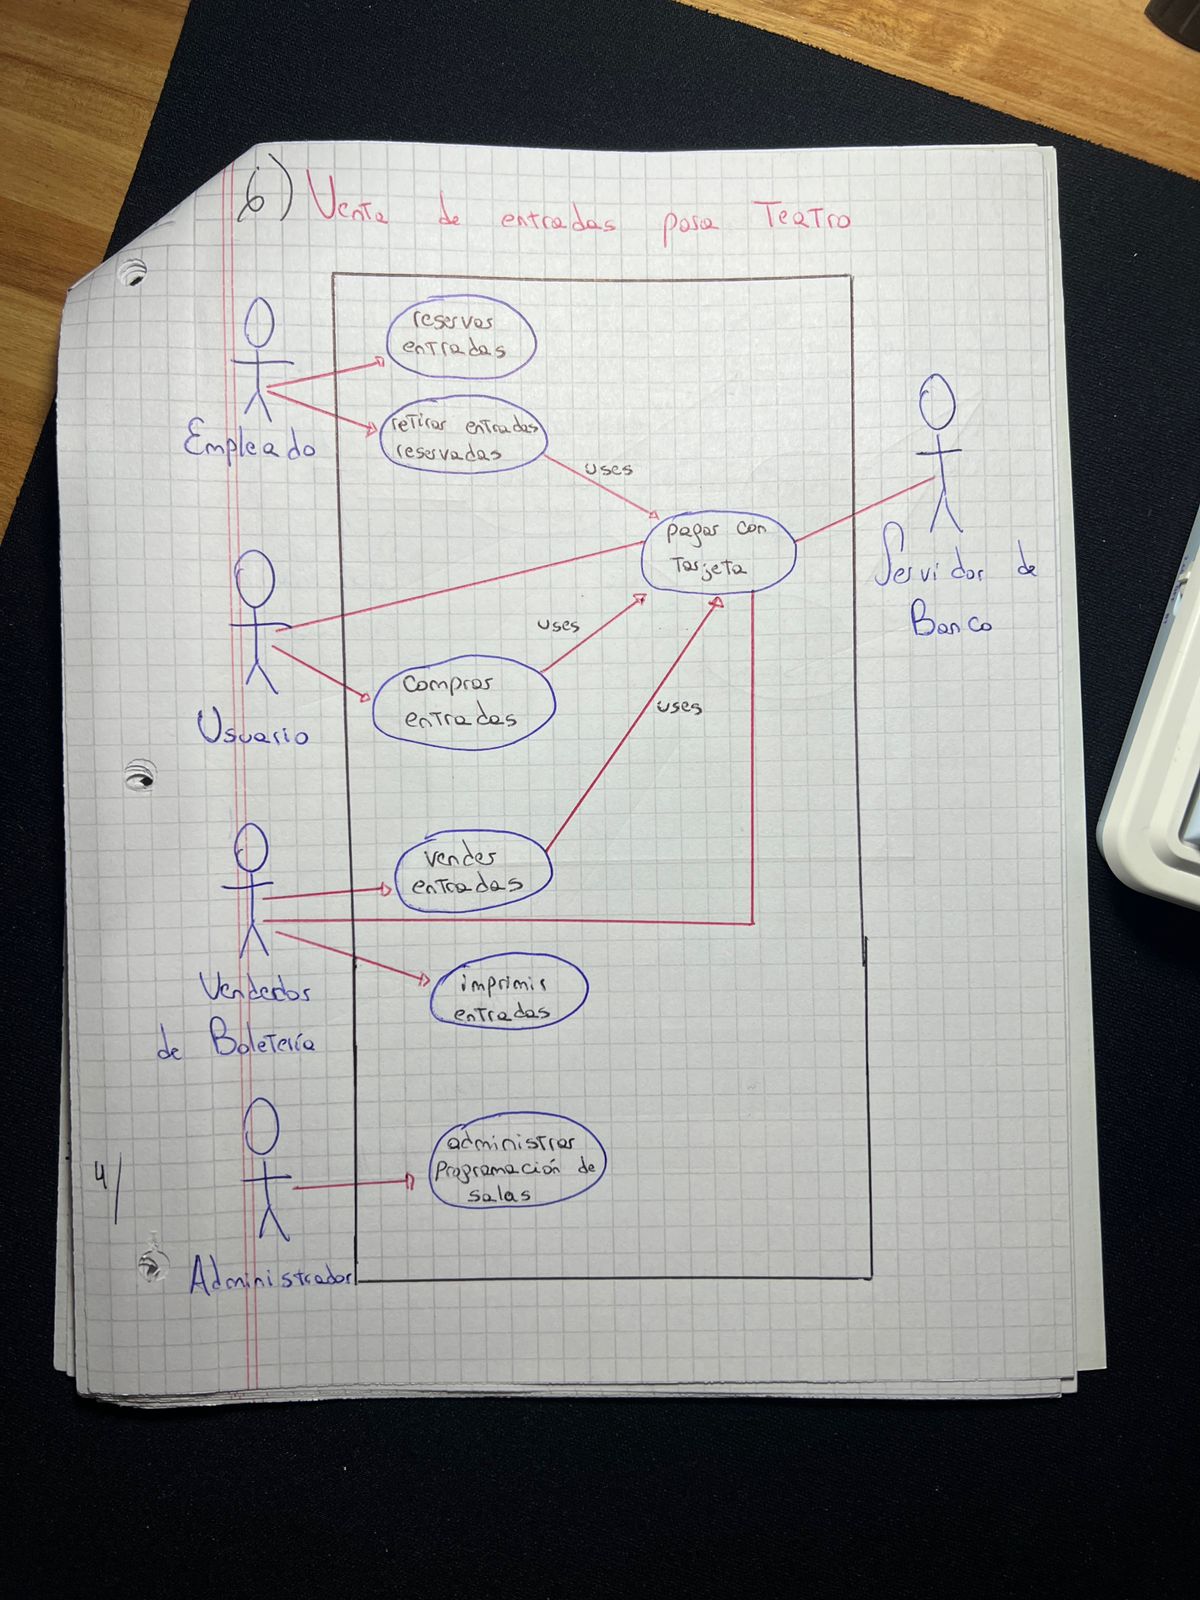 6) Venta de entradas para Teatro
reservar
entradas
Empleado
retirar entradas
reservadas
uses
pagar con
Tarjeta
Servidor de
Banco
uses
comprar
entradas
Usuario
uses
vender
entradas
Vendedor
de Boletería
imprimir
entradas
administrar
Programación de
salas
4/
Administrador